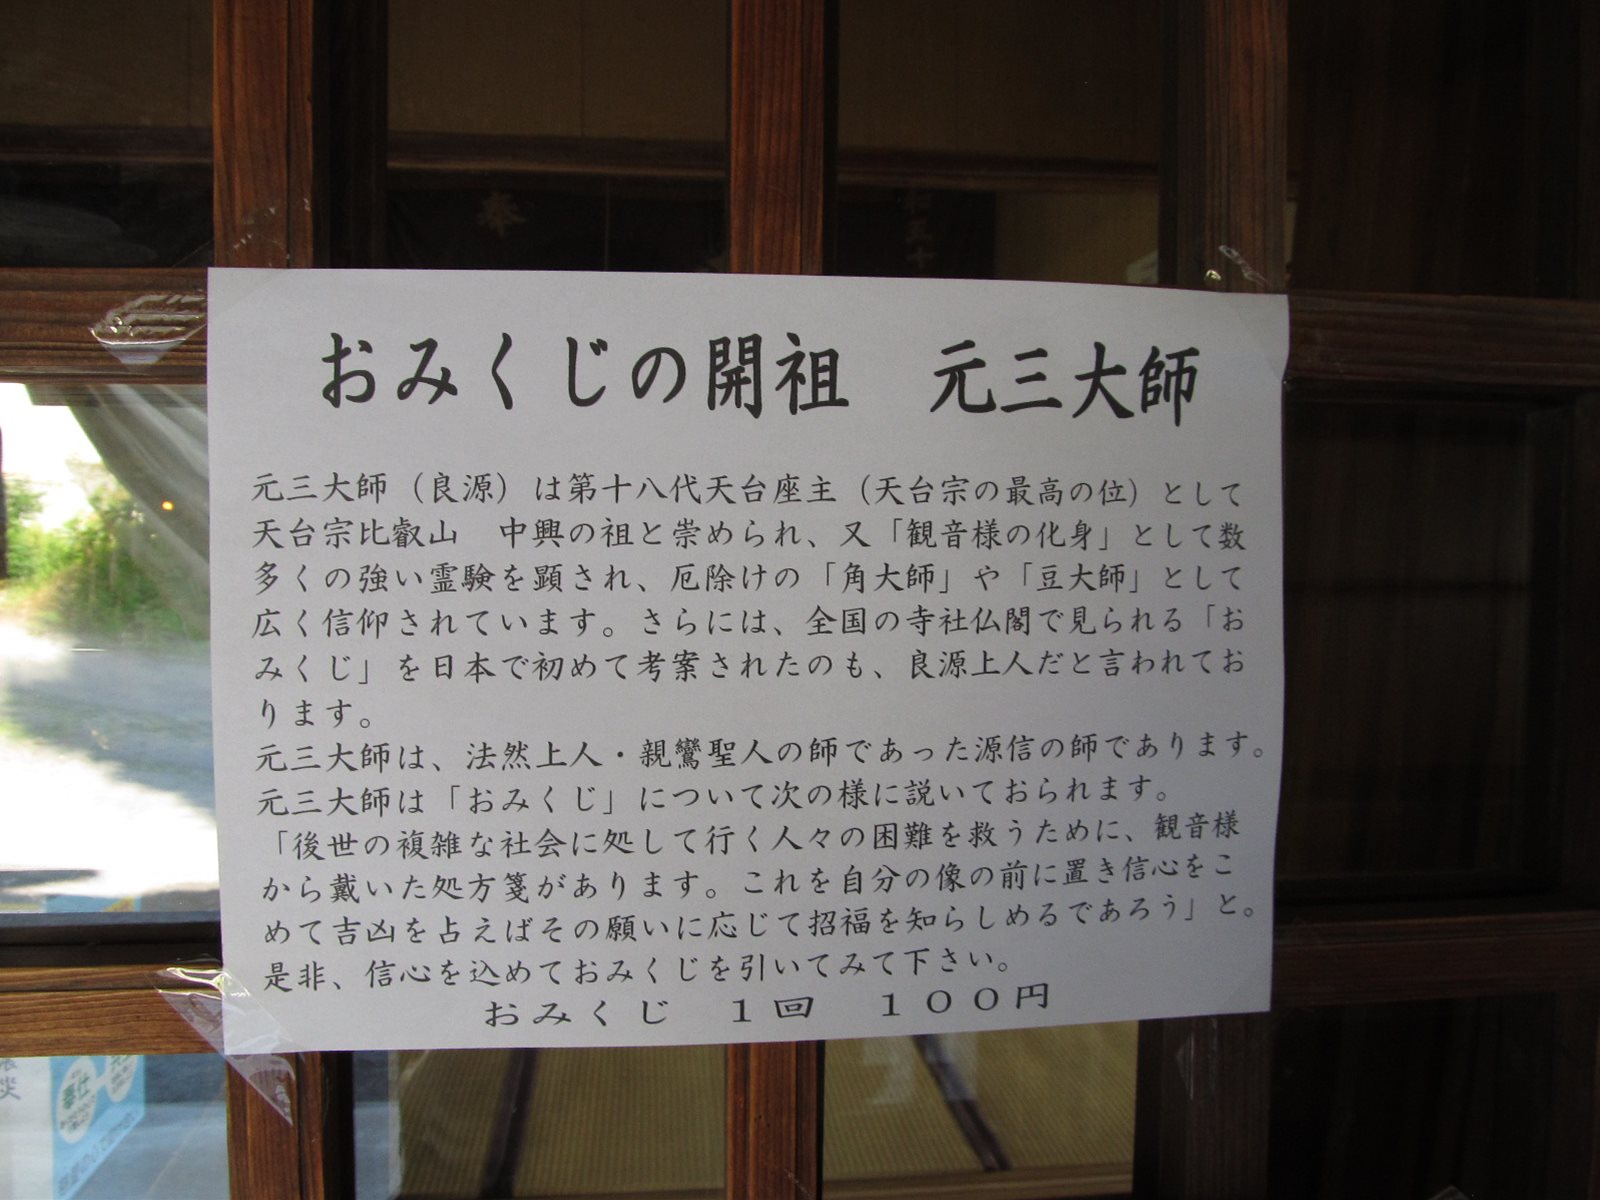 おみくじの開祖　元三大師
元三大師（良源）は第十八代天台座主（天台宗の最高の位）として
天台宗比叡山　中興の祖と崇められ、又「観音様の化身」として数
多くの強い霊験を顕され、厄除けの「角大師」や「豆大師」として
広く信仰されています。さらには、全国の寺社仏閣で見られる「お
みくじ」を日本で初めて考案されたのも、良源上人だと言われてお
ります。
元三大師は、法然上人・親鸞聖人の師であった源信の師であります。
元三大師は「おみくじ」について次の様に説いておられます。
「後世の複雑な社会に処して行く人々の困難を救うために、観音様
から戴いた処方箋があります。これを自分の像の前に置き信心をこ
めて吉凶を占えばその願いに応じて招福を知らしめるであろう」と。
是非、信心を込めておみくじを引いてみて下さい。
おみくじ　１回　１００円
奉仕